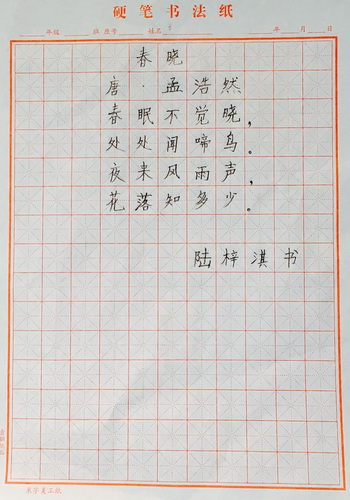 硬笔书法纸
年级 班 座号 姓名 年 月 日
春晓
唐·孟浩然
春眠不觉晓，
处处闻啼鸟。
夜来风雨声，
花落知多少。
陆梓淇书
米字美工纸